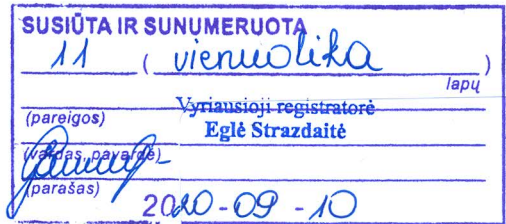 SUSIŪTA IR SUNUMERUOTA
11 (vienuolika)
lapų
Vyriausioji registratorė
(pareigos)
Eglė Strazdaitė
(vardas, pavardė)
(parašas)
2020-09-10